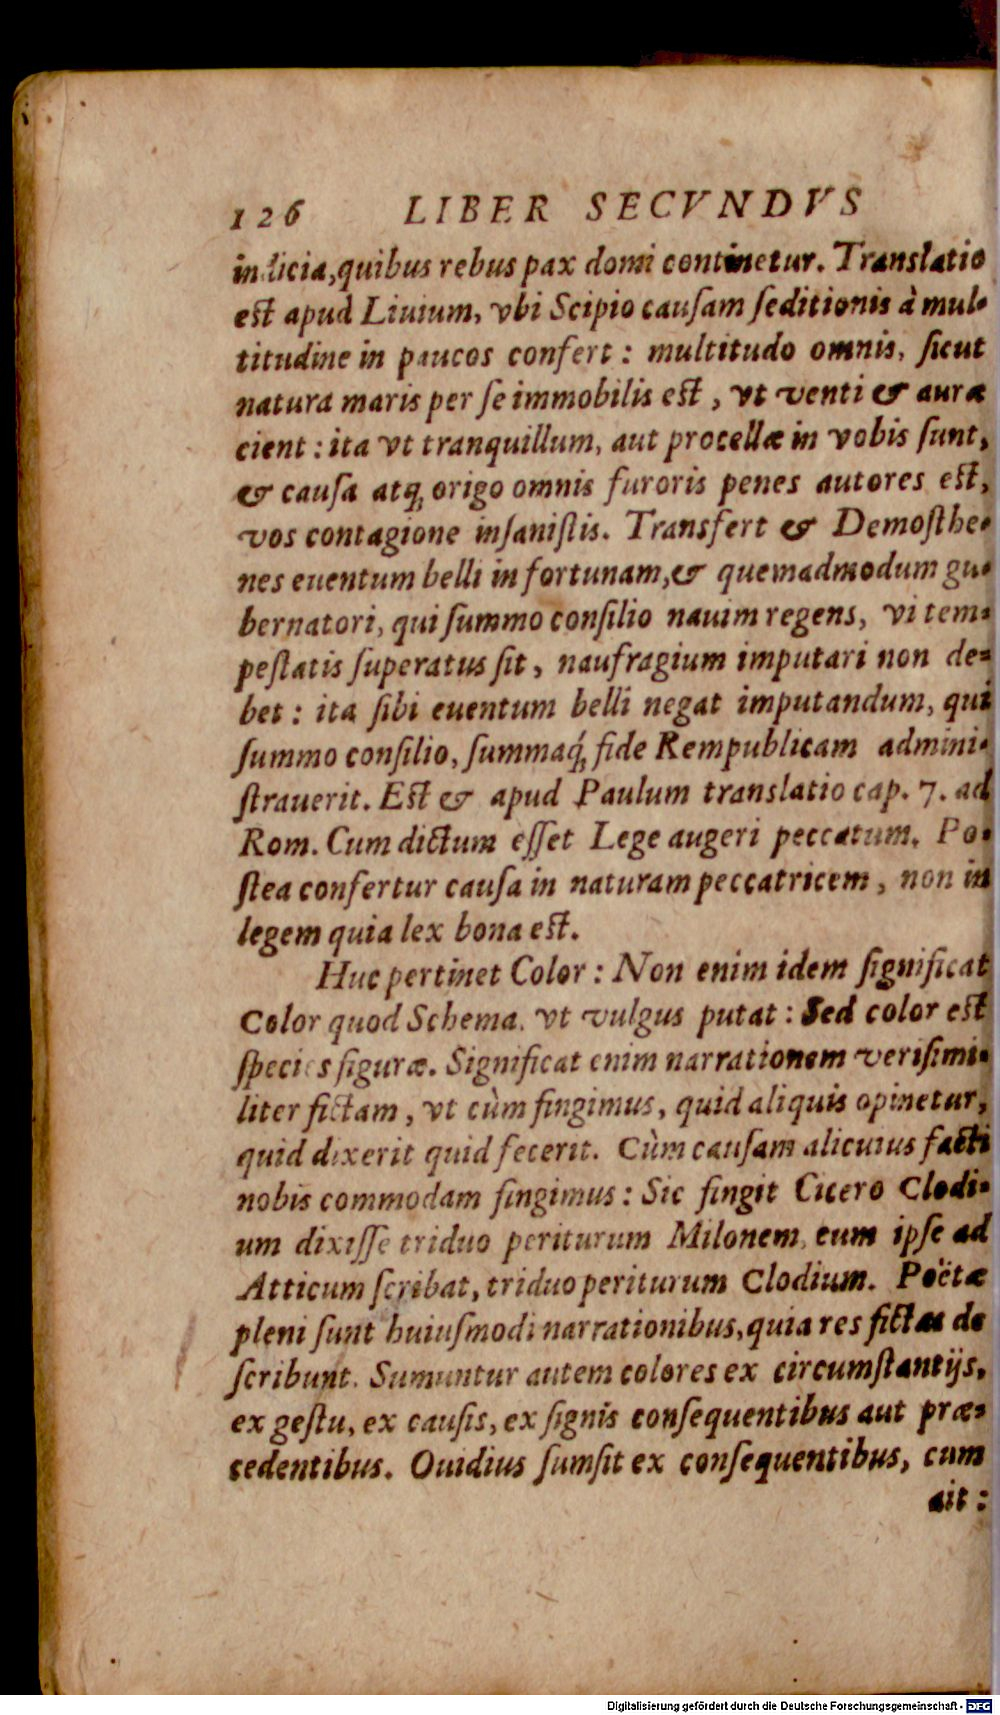 126 LIBER SECVNDVS
indicia, quibus rebus pax domi continetur. Translatio
est apud Liuium, vbi Scipio cauſam ſeditionis à mul-
titudine in paucos confert: multitudo omnis, ſicut
natura maris per ſe immobilis est, vt venti & auræ
cient: ita vt tranquillum, aut procellæ in vobis ſunt,
& cauſa atq; origo omnis furoris penes autores est,
vos contagione inſaniſtis. Transfert & Demoſthe-
nes euentum belli in fortunam, & quemadmodum gu-
bernatori, qui ſummo conſilio nauim regens, vi tem-
peſtatis ſuperatus ſit, naufragium imputari non de-
bet: ita ſibi euentum belli negat imputandum, qui
ſummo conſilio, ſummaq́; fide Rempublicam admini-
ſtrauerit. Est & apud Paulum translatio cap. 7. ad
Rom. Cum dictum eſſet Lege augeri peccatum. Po-
ſtea confertur cauſa in naturam peccatricem, non in
legem quia lex bona est.
Huc pertinet Color: Non enim idem ſignificat
Color quod Schema, vt vulgus putat: Sed color est
ſpecies figuræ. Significat enim narrationem veriſimi-
liter fictam, vt cùm fingimus, quid aliquis opinetur,
quid dixerit quid fecerit. Cùm cauſam alicuius facti
nobis commodam fingimus: Sic fingit Cicero Clodi-
um dixiſſe triduo periturum Milonem, cum ipſe ad
Atticum ſcribat, triduo periturum Clodium. Poëtæ
pleni ſunt huiuſmodi narrationibus, quia res fictas de
ſcribunt. Sumuntur autem colores ex circumſtantijs,
ex geſtu, ex cauſis, ex ſignis conſequentibus aut præ-
cedentibus. Ouidius ſumſit ex conſequentibus, cum
ait:
Digitalisierung gefördert durch die Deutsche Forschungsgemeinschaft - DFG